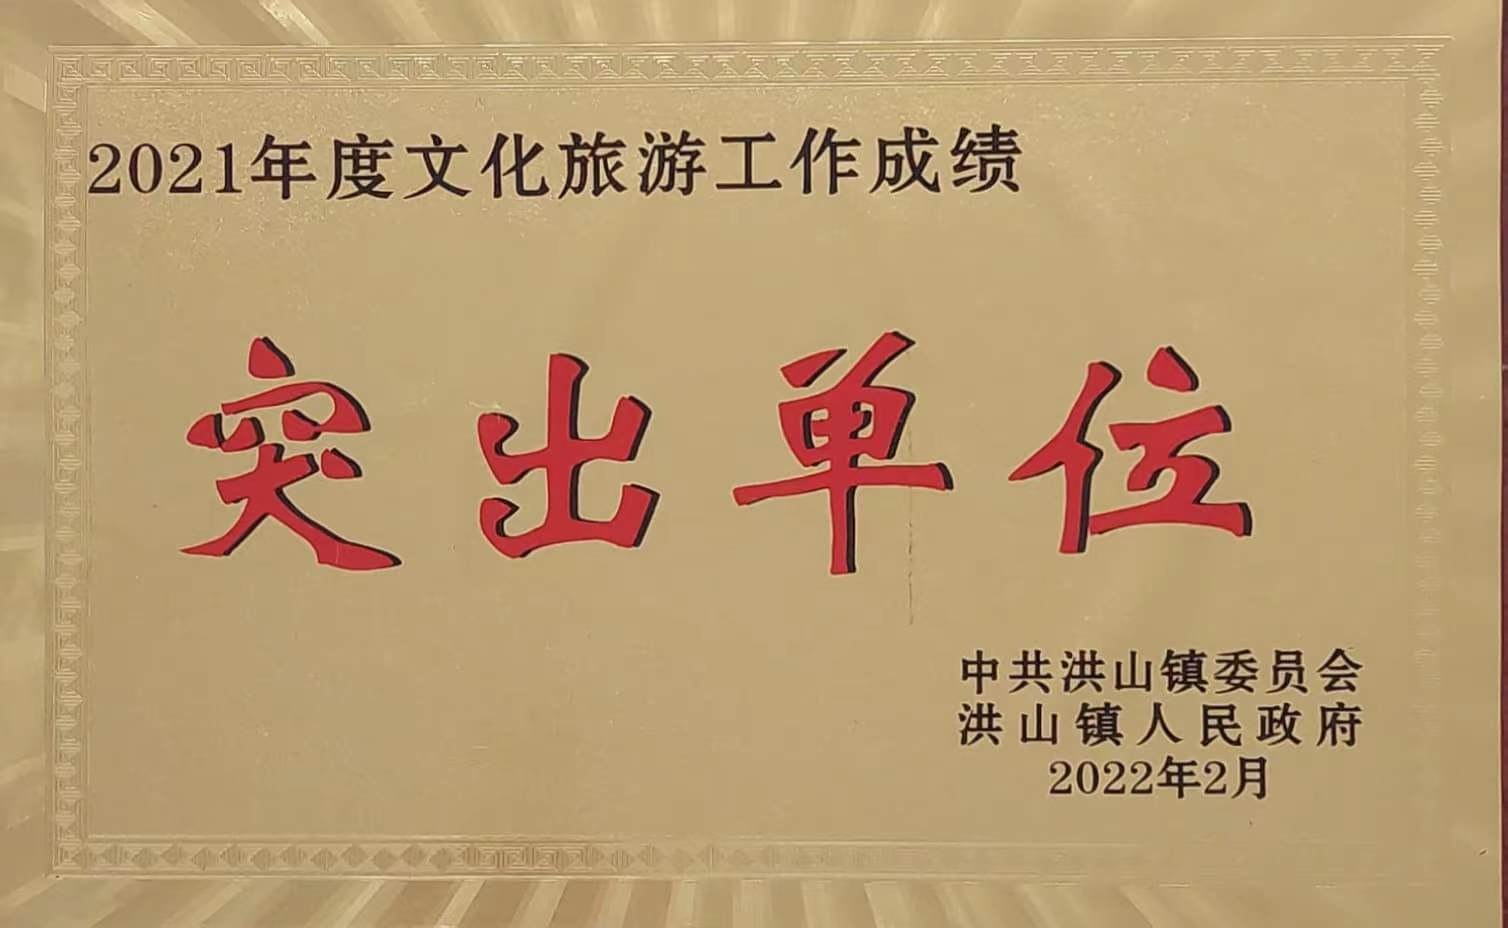 2021年度文化旅游工作成绩
突出单位
中共洪山镇委员会
洪山镇人民政府
2022年2月